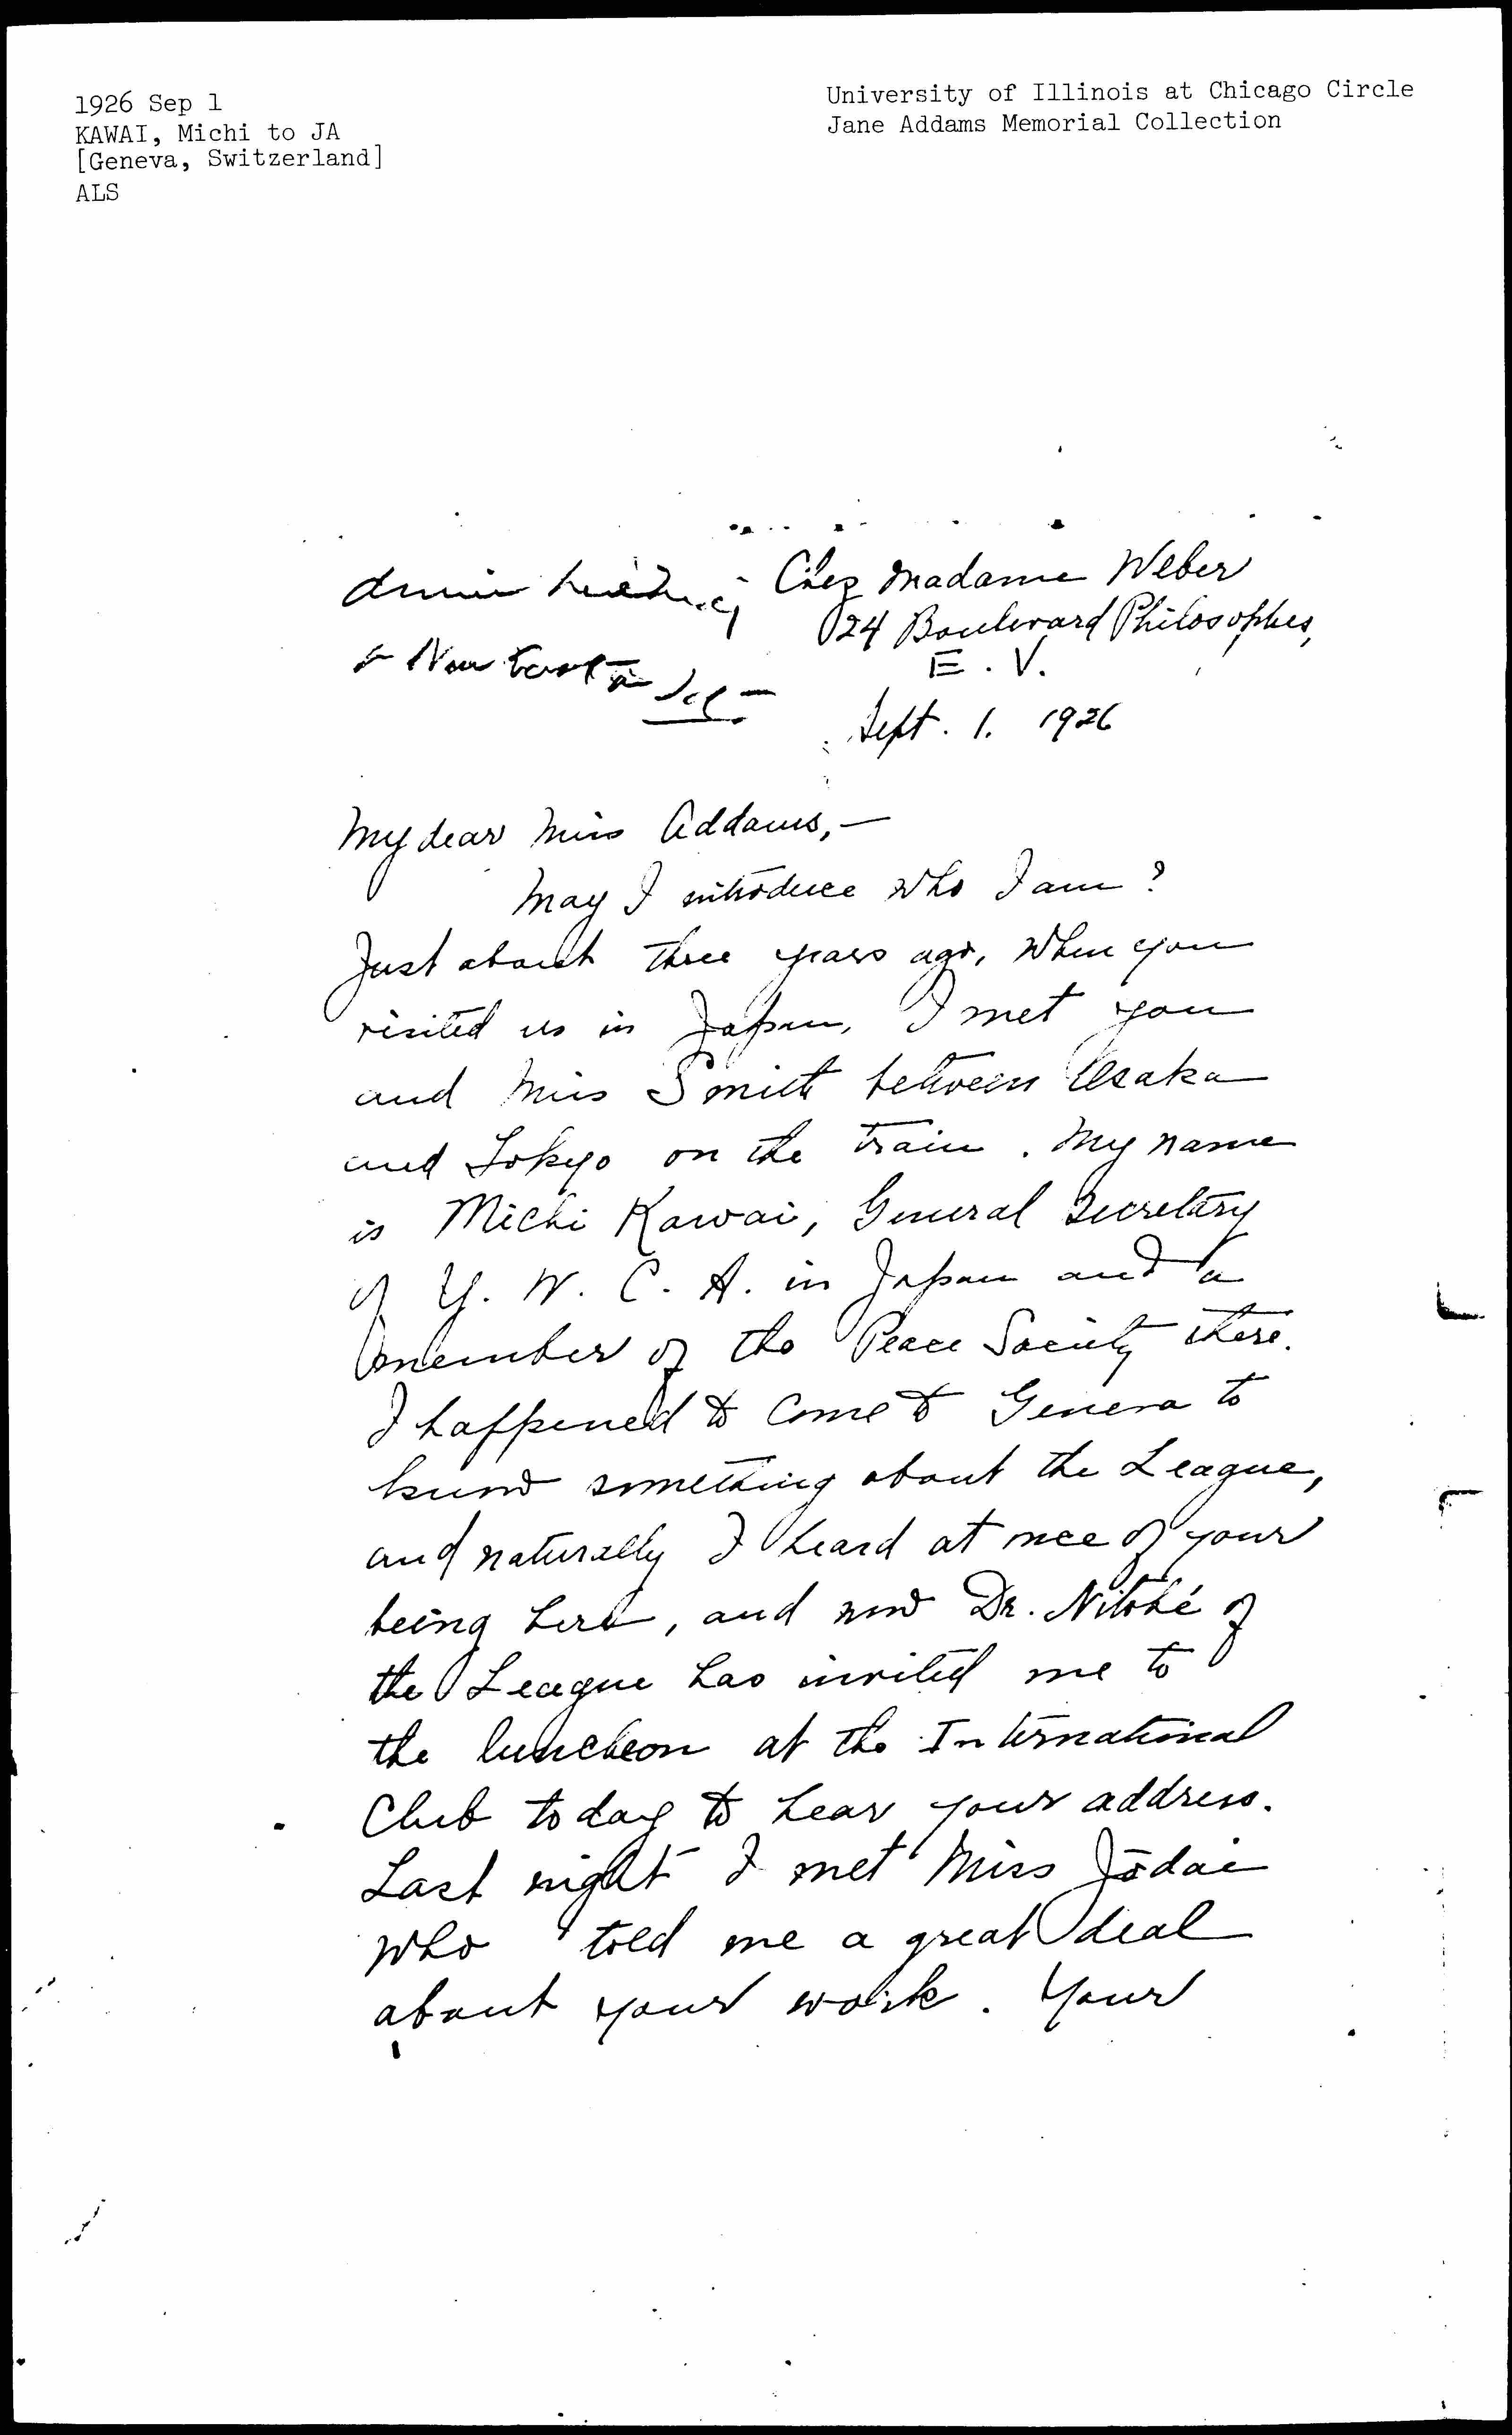 1926 Sep 1
KAWAI, Michi to JA
[Geneva, Switzerland]
ALS
University of Illinois at Chicago Circle
Jane Addams Memorial Collection
Chez Madame Weber
24 Boulevard Philosophes,
E. V.
Sept. 1. 1926
My dear Miss Addams,—
May I introduce who I am?
Just about three years ago, when you
visited us in Japan, I met you
and Miss Smith between Osaka
and Tokyo on the train. My name
is Michi Kawai, General Secretary
of Y. W. C. A. in Japan and a
member of the Peace Society there.
I happened to come to Geneva to
know something about the League,
and naturally I heard at once of your
being here, and now Dr. Nitobé of
the League has invited me to
the luncheon at the International
Club today to hear your address.
Last night I met Miss Jōdai
who told me a great deal
about your work. Your